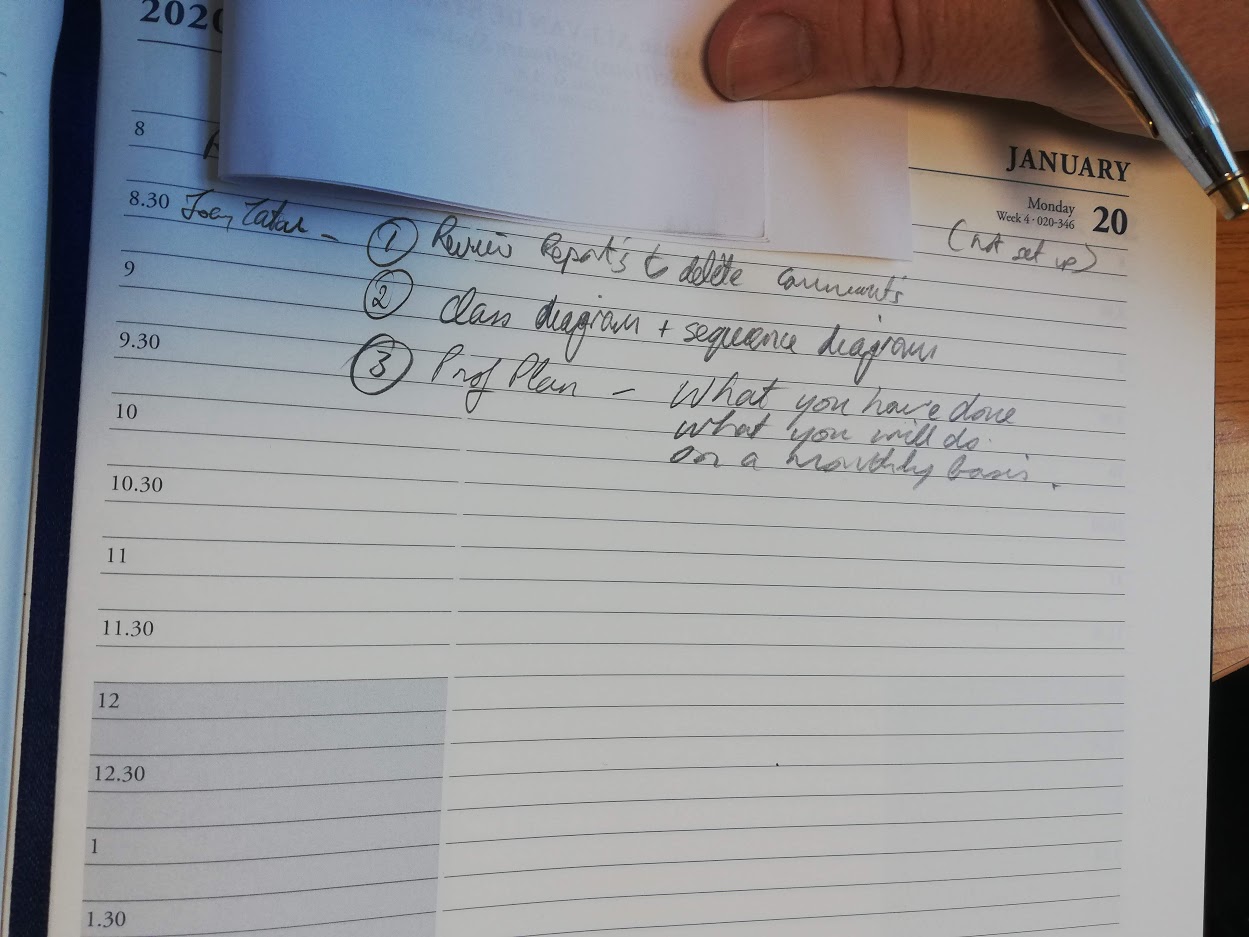 2020
JANUARY
Monday
Week 4 · 020-346
20
8
8.30 Joey - ① Review Reports to delete comments (not set up)
9 ② Class diagram + sequence diagram
9.30 ③ Prof Plan - What you have done
10 What you will do.
on a monthly basis.
10.30
11
11.30
12
12.30
1
1.30